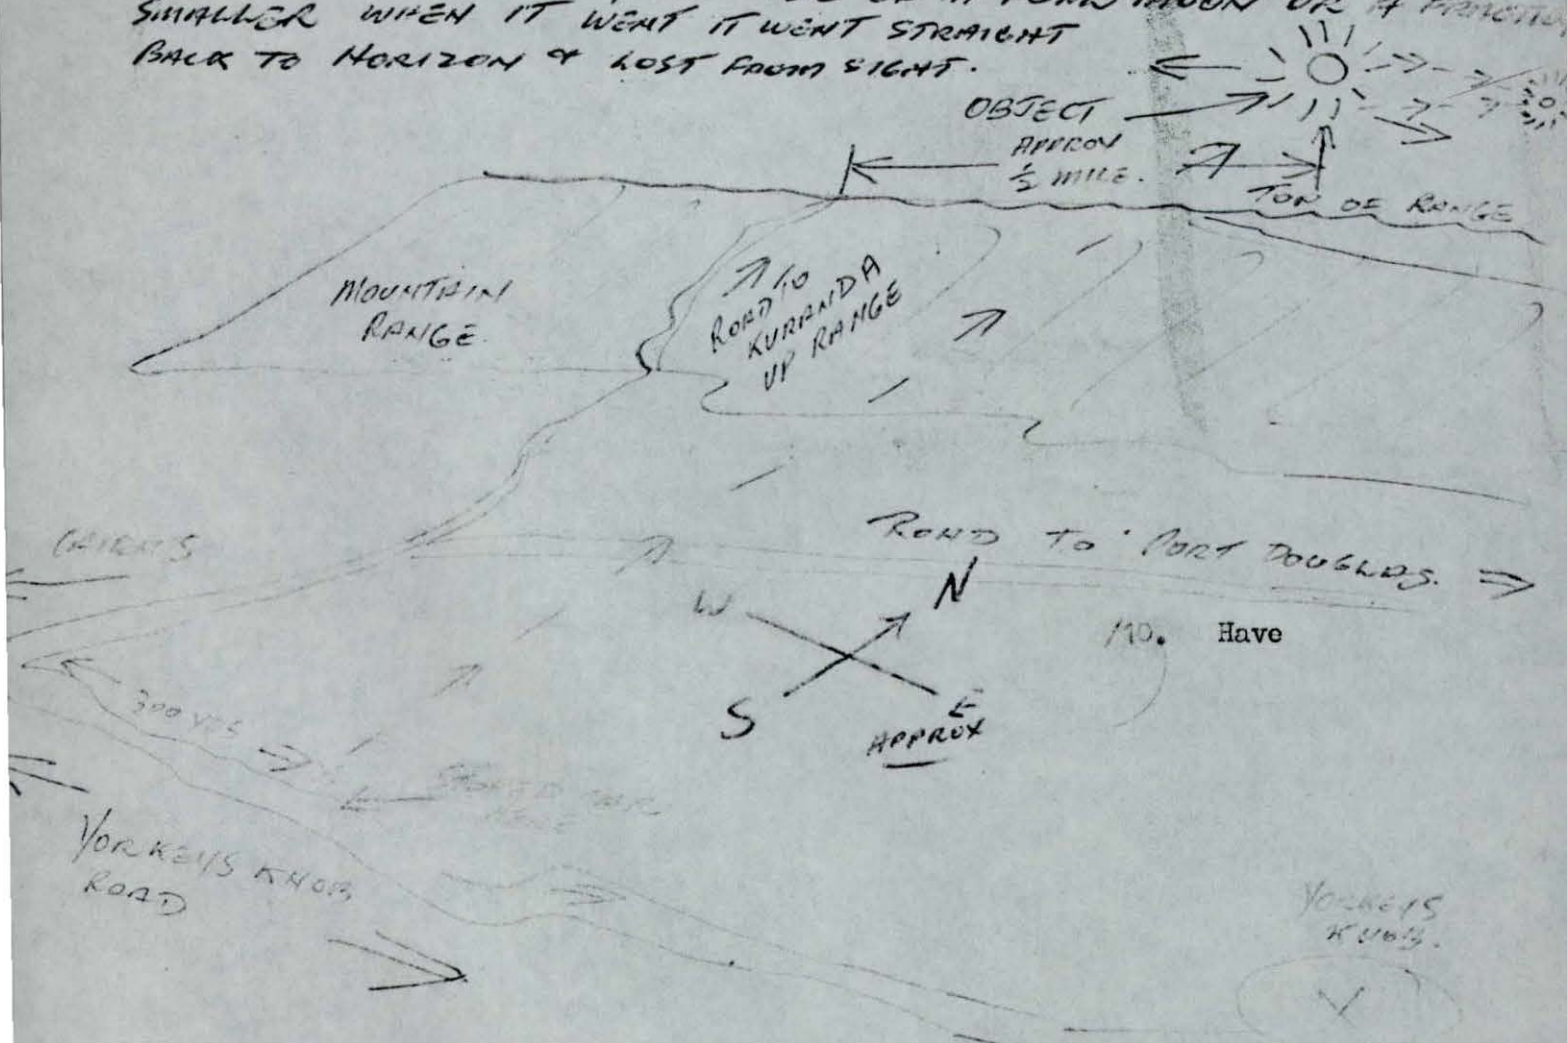 SMALLER WHEN IT WENT IT WENT STRAIGHT
BACK TO HORIZON & LOST FROM SIGHT.
OBJECT
APPROX
½ MILE.
TOP OF RANGE
MOUNTAIN
RANGE
ROAD TO
KURANDA
UP RANGE
CAIRNS
ROAD TO PORT DOUGLAS.
W
N
S
E
APPROX
/10. Have
300 YDS
YORKEYS KNOB
ROAD
YORKEYS
KNOB.